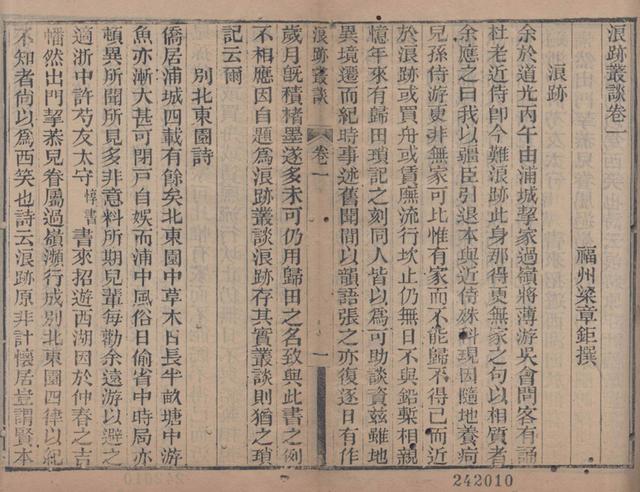 浪跡叢談卷一
福州梁章鉅撰
浪跡
余於道光丙午由浦城挈家過嶺將薄游吳會問客有誦
杜老近侍卽今難浪跡此身那得更無家之句以相質者
余應之曰我以疆臣引退本與近侍殊科現因隨地養疴
兒孫侍游更非無家可比惟有家而不能歸不得已而近
於浪跡或買舟或賃廡流行坎止仍無日不與鉛槧相親
憶年來有歸田瑣記之刻同人皆以爲可助談資茲雖地
異境遷而紀時事述舊聞間以韻語張之亦復逐日有作
浪跡叢談
卷一
一
歲月旣積楮墨遂多未可仍用歸田之名致與此書之例
不相應因自題爲浪跡叢談浪跡存其實叢談則猶之瑣
記云爾
別北東園詩
僑居浦城四載有餘矣北東園中草木日長半畝塘中游
魚亦漸大甚可閉戸自娛而浦中風俗日偷省中時局亦
頓異所聞所見多非意料所期兒輩每勸余遠游以避之
適浙中許芍友太守惇書書來招遊西湖因於仲春之吉
幡然出門挈恭兒眷屬過嶺瀕行成別北東園四律以紀
不知者尚以爲西笑也詩云浪跡原非計懷居豈謂賢本
242010